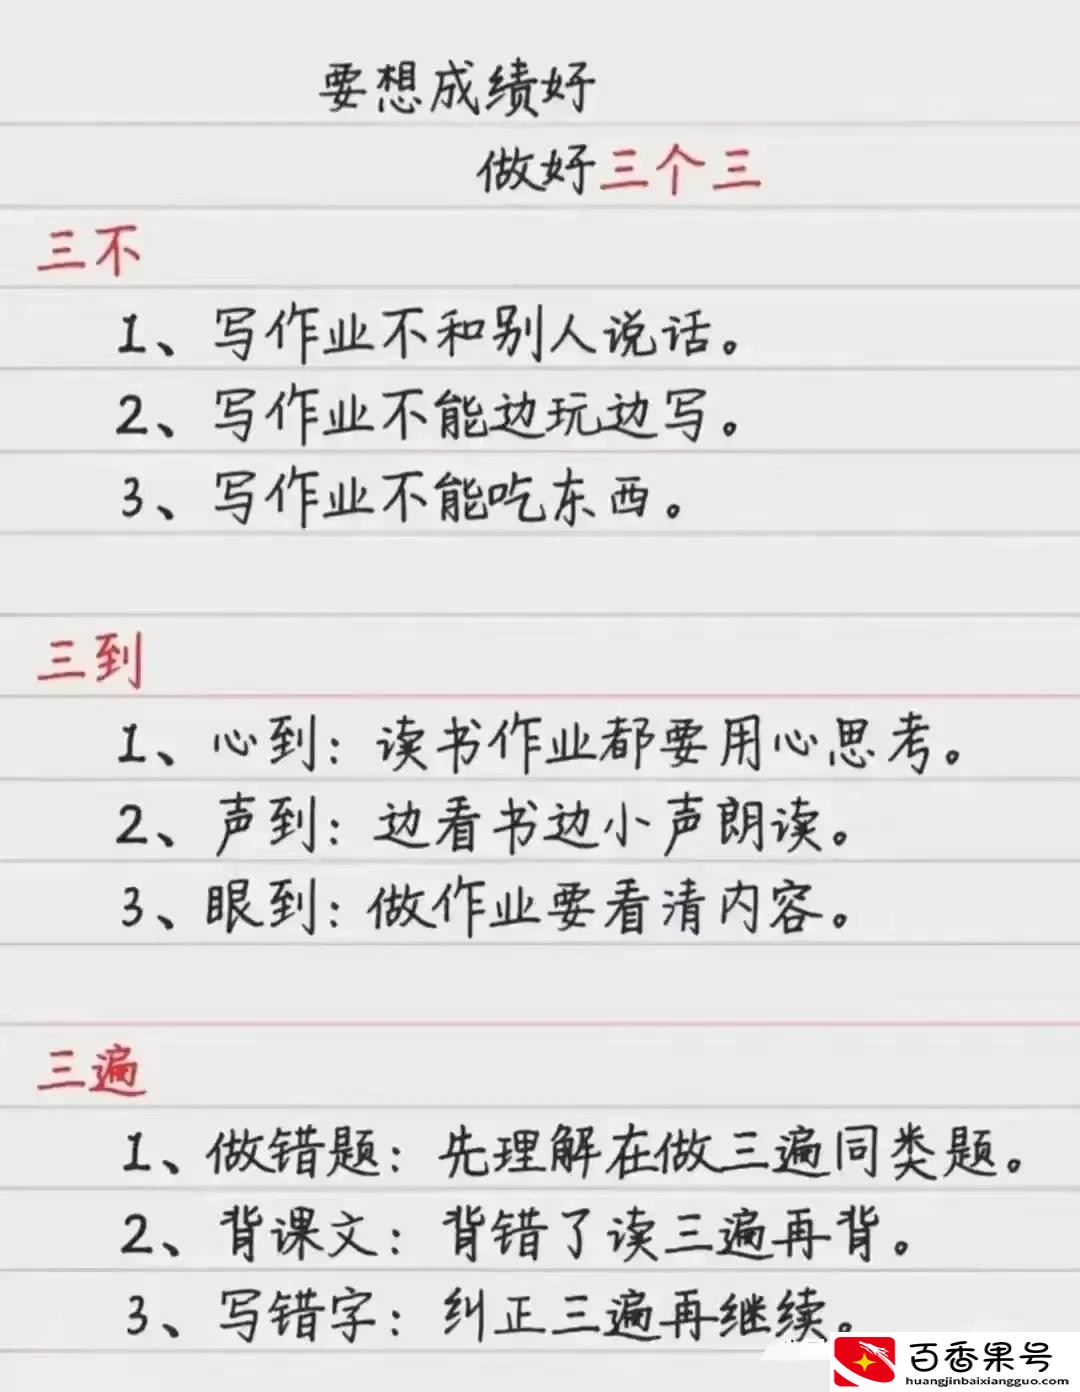 要想成绩好
做好三个三
三不
1、写作业不和别人说话。
2、写作业不能边玩边写。
3、写作业不能吃东西。
三到
1、心到：读书作业都要用心思考。
2、声到：边看书边小声朗读。
3、眼到：做作业要看清内容。
三遍
1、做错题：先理解在做三遍同类题。
2、背课文：背错了读三遍再背。
3、写错字：纠正三遍再继续。
百香果号
huangjinbaixiangguo.com